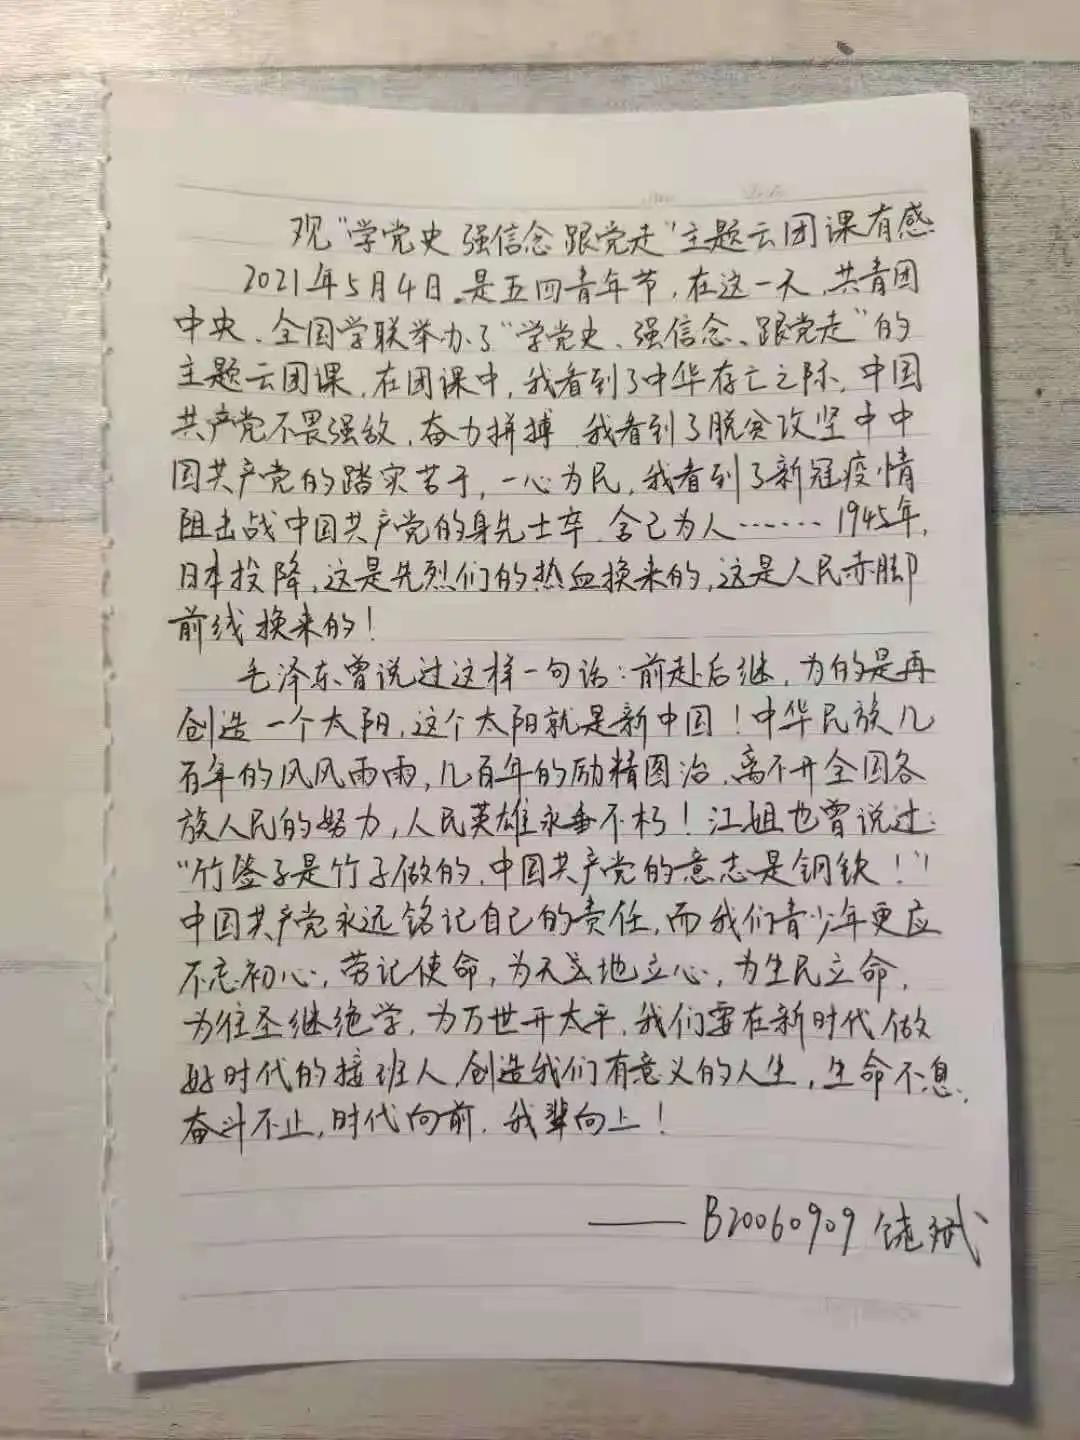 观“学党史 强信念 跟党走”主题云团课有感
2021年5月4日,是五四青年节,在这一天,共青团
中央、全国学联举办了“学党史、强信念、跟党走”的
主题云团课,在团课中,我看到了中华存亡之际,中国
共产党不畏强敌,奋力拼搏 我看到了脱贫攻坚中中
国共产党的踏实苦干,一心为民,我看到了新冠疫情
阻击战中国共产党的身先士卒 舍己为人…… 1945年,
日本投降,这是先烈们的热血换来的,这是人民赤脚
前线换来的!
毛泽东曾说过这样一句话:前赴后继,为的是再
创造一个太阳,这个太阳就是新中国!中华民族几
百年的风风雨雨,几百年的励精图治,离不开全国各
族人民的努力,人民英雄永垂不朽!江姐也曾说过:
“竹签子是竹子做的,中国共产党的意志是钢铁!”
中国共产党永远铭记自己的责任,而我们青少年更应
不忘初心,劳记使命,为天地立心,为生民立命,
为往圣继绝学,为万世开太平,我们要在新时代做
好时代的接班人,创造我们有意义的人生,生命不息,
奋斗不止,时代向前,我辈向上!
——B20060909 饶斌